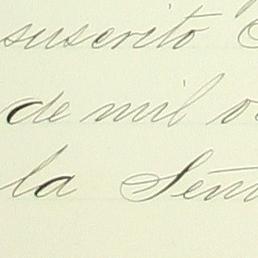 suscrito
de mil o
la Señ